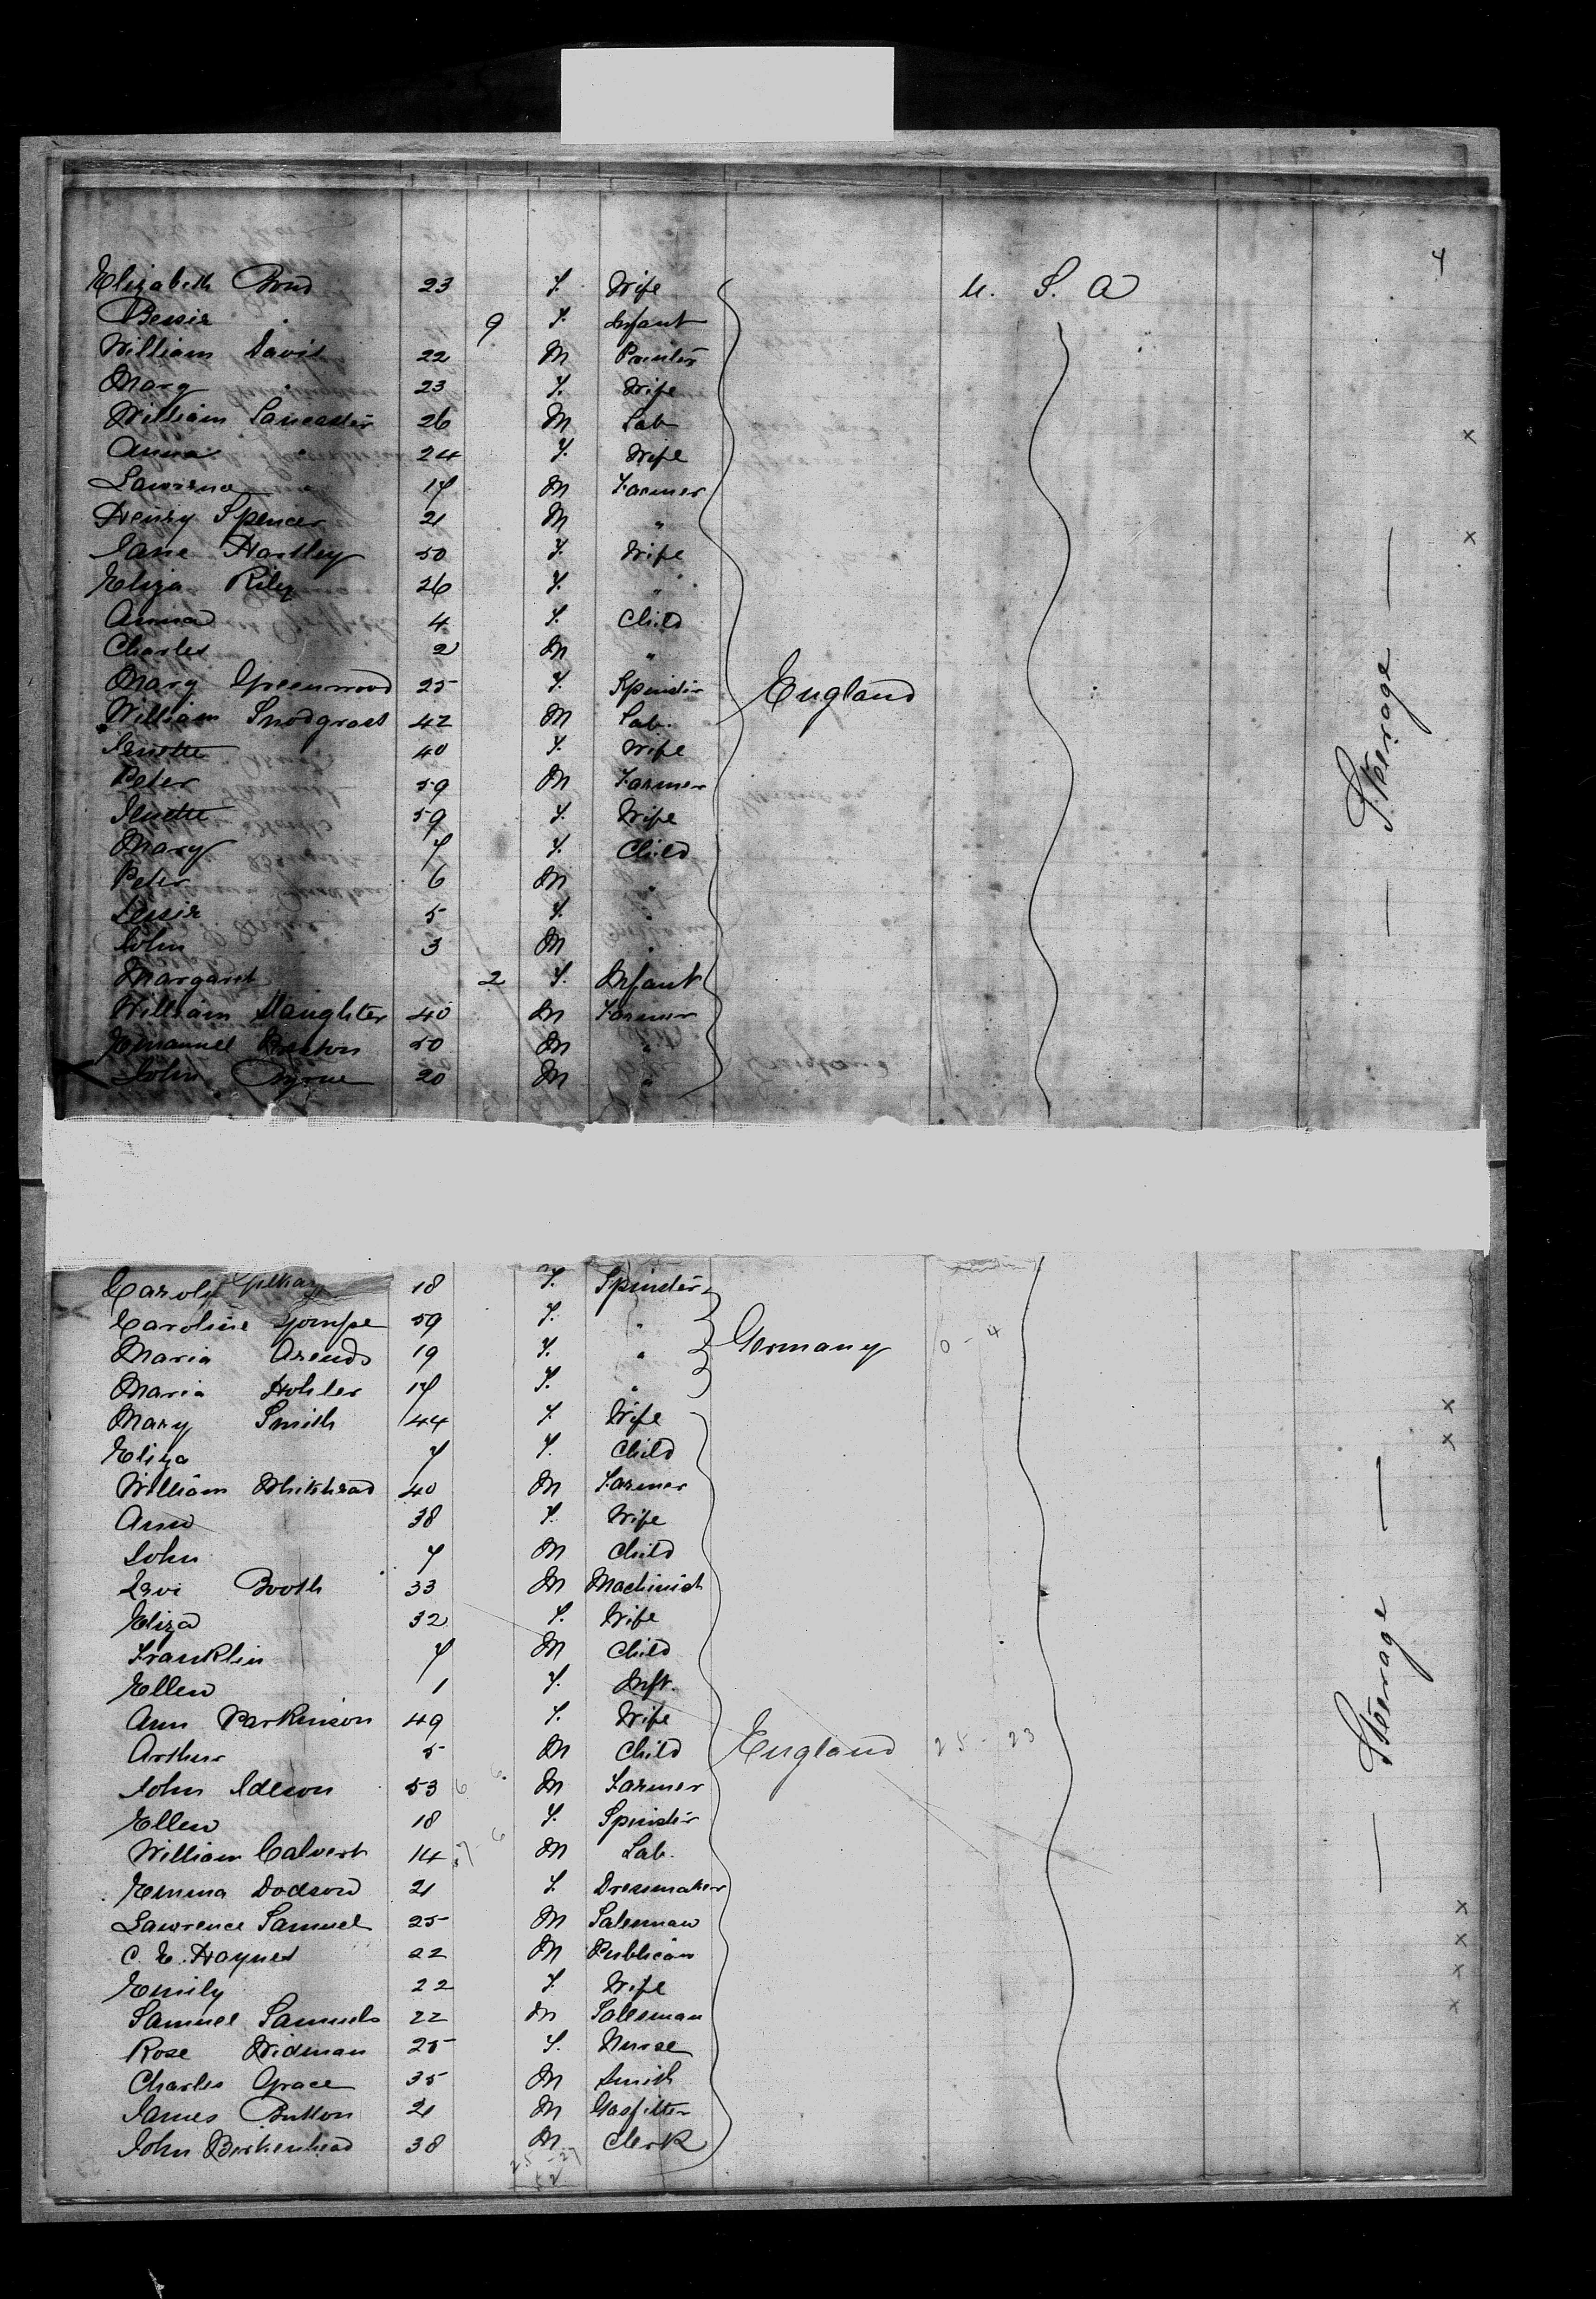 4
Elizabeth Bond 23 F. Wife U. S. A
Bessie " 9 F. Infant
William Davis 22 M Painter
Mary " 23 F. Wife
William Lancaster 26 M Lab x
Anna " 24 F. Wife
17 M Farmer
Henry Spencer 21 M "
Jane Hartley 50 F. Wife x
Eliza Riley 26 F. "
Anna 4 F. Child
Charles 2 M "
Mary Greenwood 25 F. Spinster England
William Snodgrass 42 M Lab. — Steerage —
Jenette 40 F. Wife
Peter 59 M Farmer
Jenette 59 F. Wife
Mary 7 F. Child
Peter 6 M "
Jessie 5 F. "
John 3 M "
Margaret 2 F. Infant
William Slaughter 40 M Farmer
Emanuel 50 M "
John Byrne 20 M "
18 F. Spinster
Caroline Gompe 59 F. "
Maria Arends 19 F. " Germany 0-4
Maria Hohler 17 F. "
Mary Smith 44 F. Wife x
Eliza 7 F. Child x
William Whitehead 40 M Farmer
Ann 38 F. Wife
John 7 M Child
Levi Booth 33 M Machinist
Eliza 32 F. Wife
Franklin 7 M Child
Ellen 1 F. Inft.
Ann Parkinson 49 F. Wife — Steerage —
Arthur 5 M Child England 25-23
John 53 M Farmer
Ellen 18 F. Spinster
William Calvert 14 M Lab.
Emma Dodson 21 F. Dressmaker
Lawrence Samuel 25 M Salesman x
C. E. Haynes 22 M Publican x
Emily 22 F. Wife x
Samuel Samuels 22 M Salesman x
Rose Widman 25 F. Nurse
Charles Grace 35 M Smith
James Button 21 M Gasfitter
John Birkenhead 38 M Clerk
25-27
52